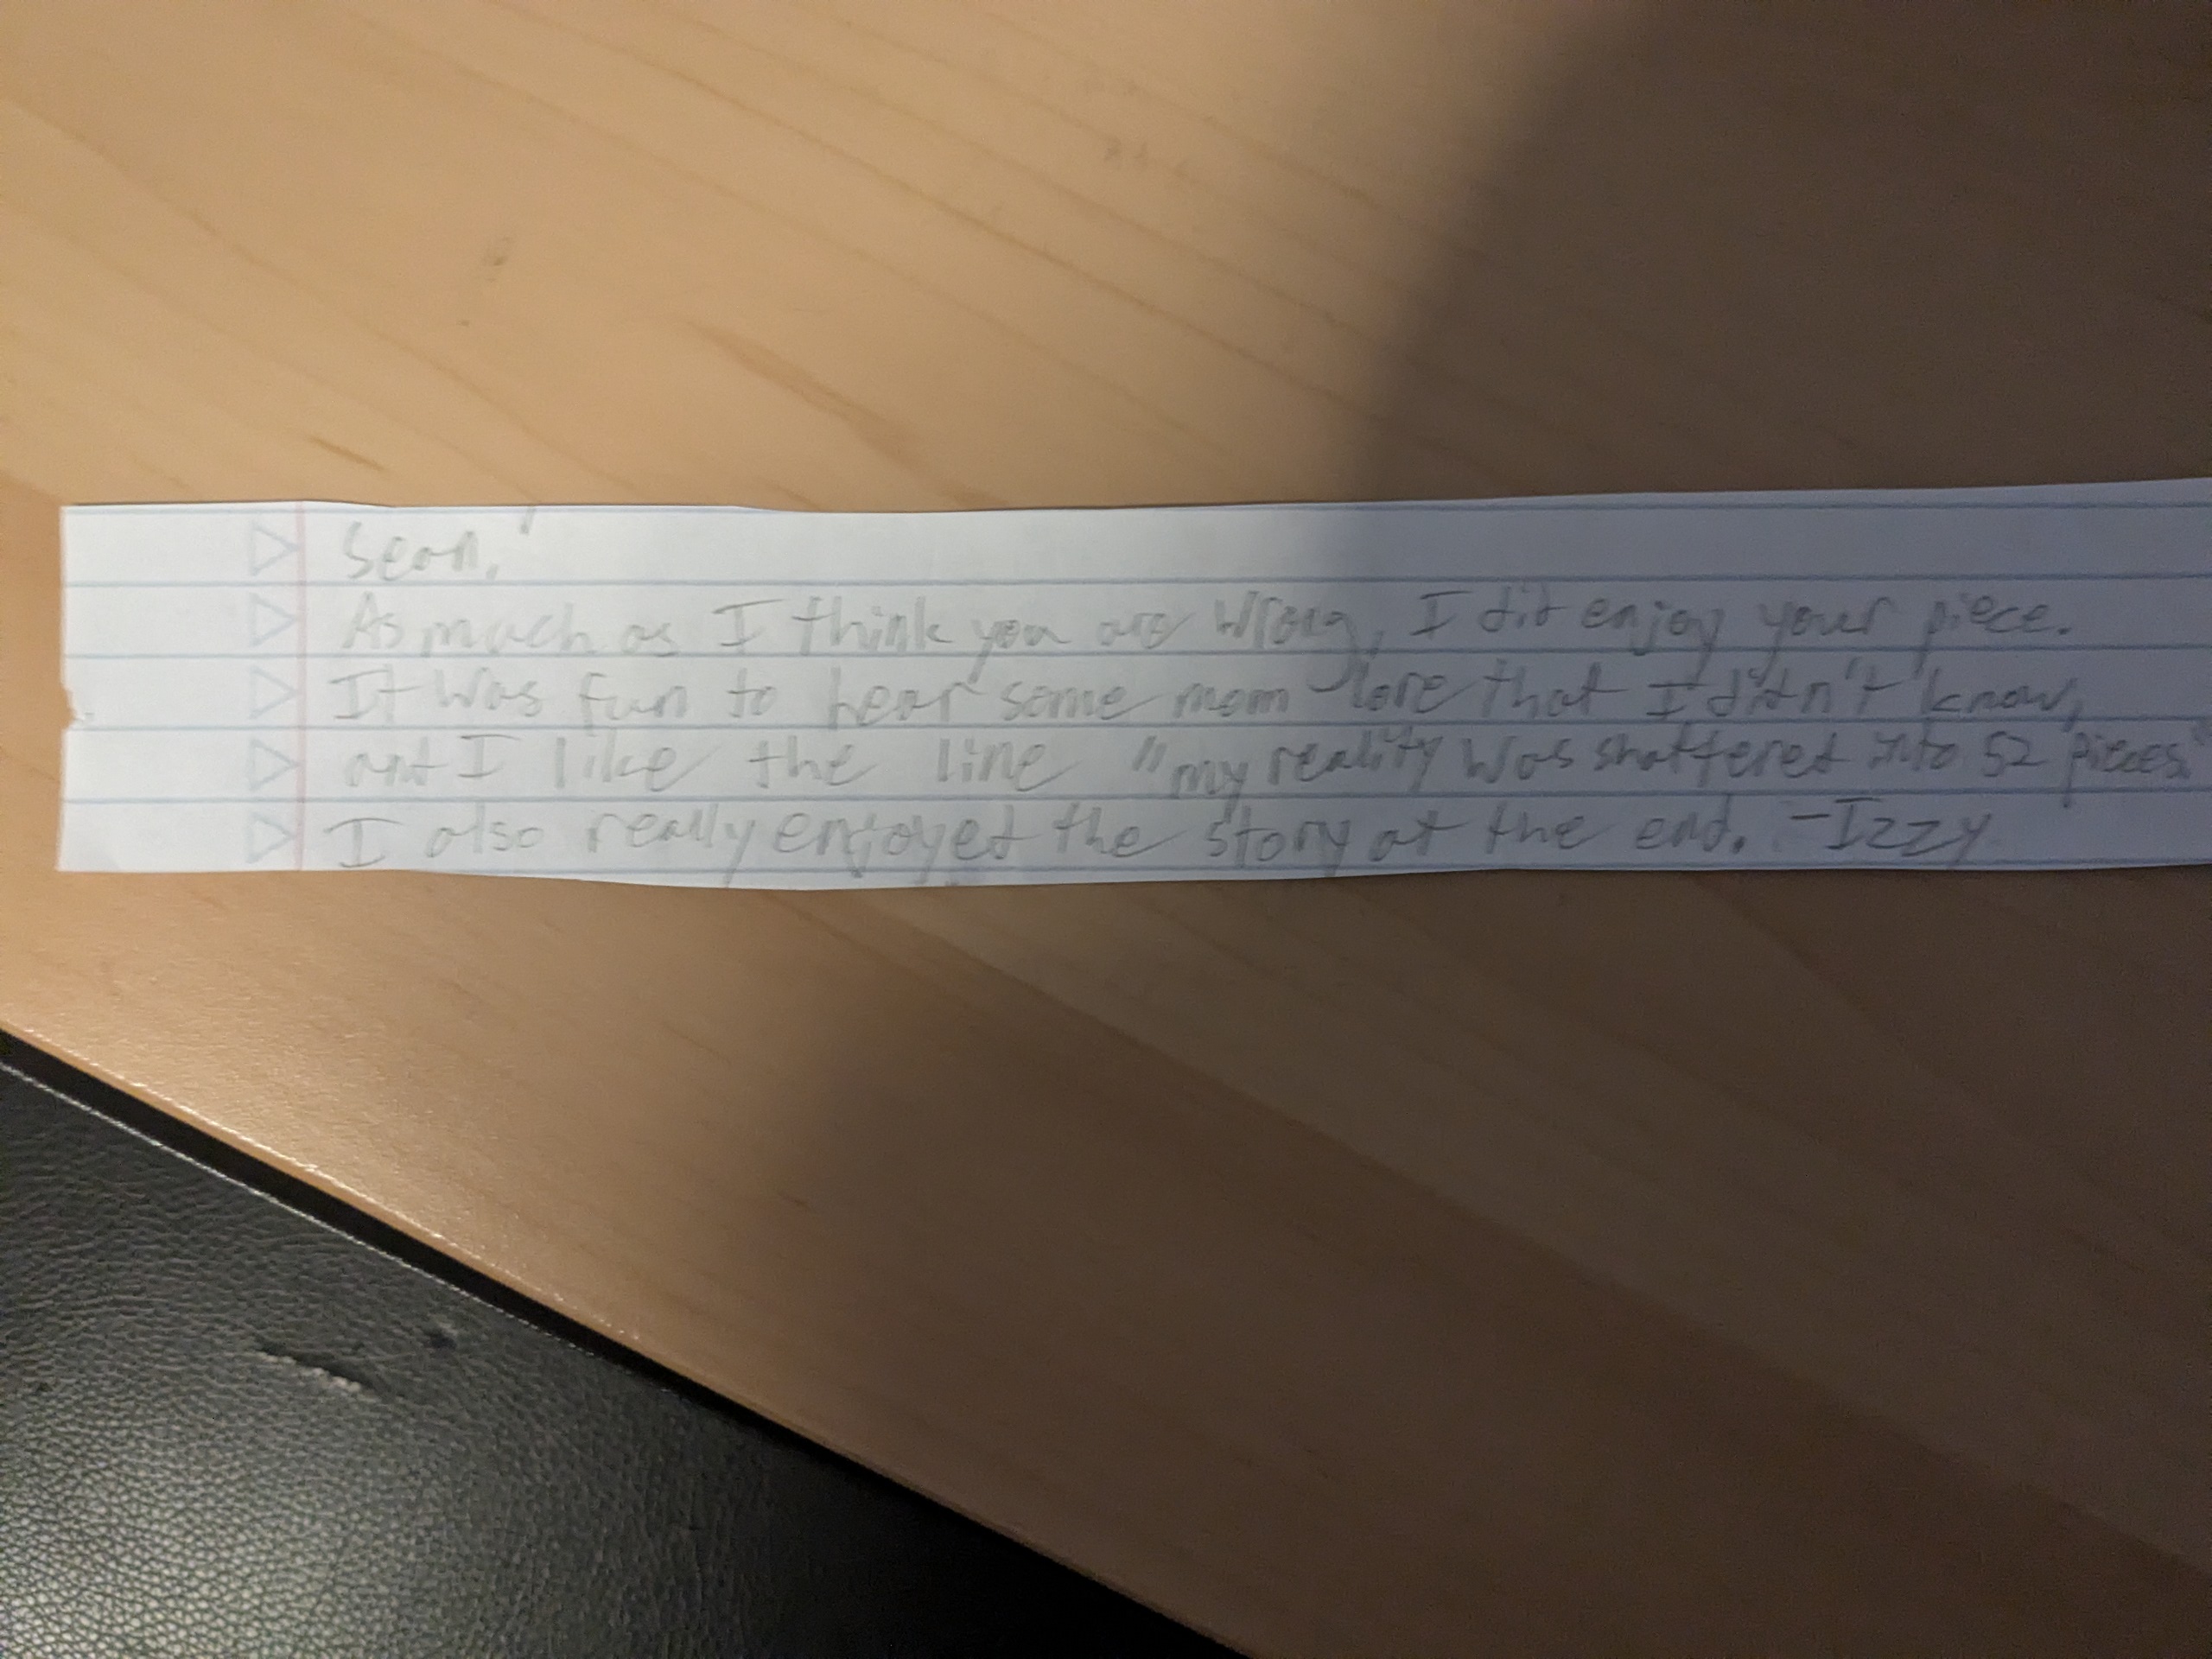 Sean,
As much as I think you are wrong, I did enjoy your piece.
It was fun to hear some mom lore that I didn't know,
and I like the line "my reality was shattered into 52 pieces."
I also really enjoyed the story at the end. -Izzy